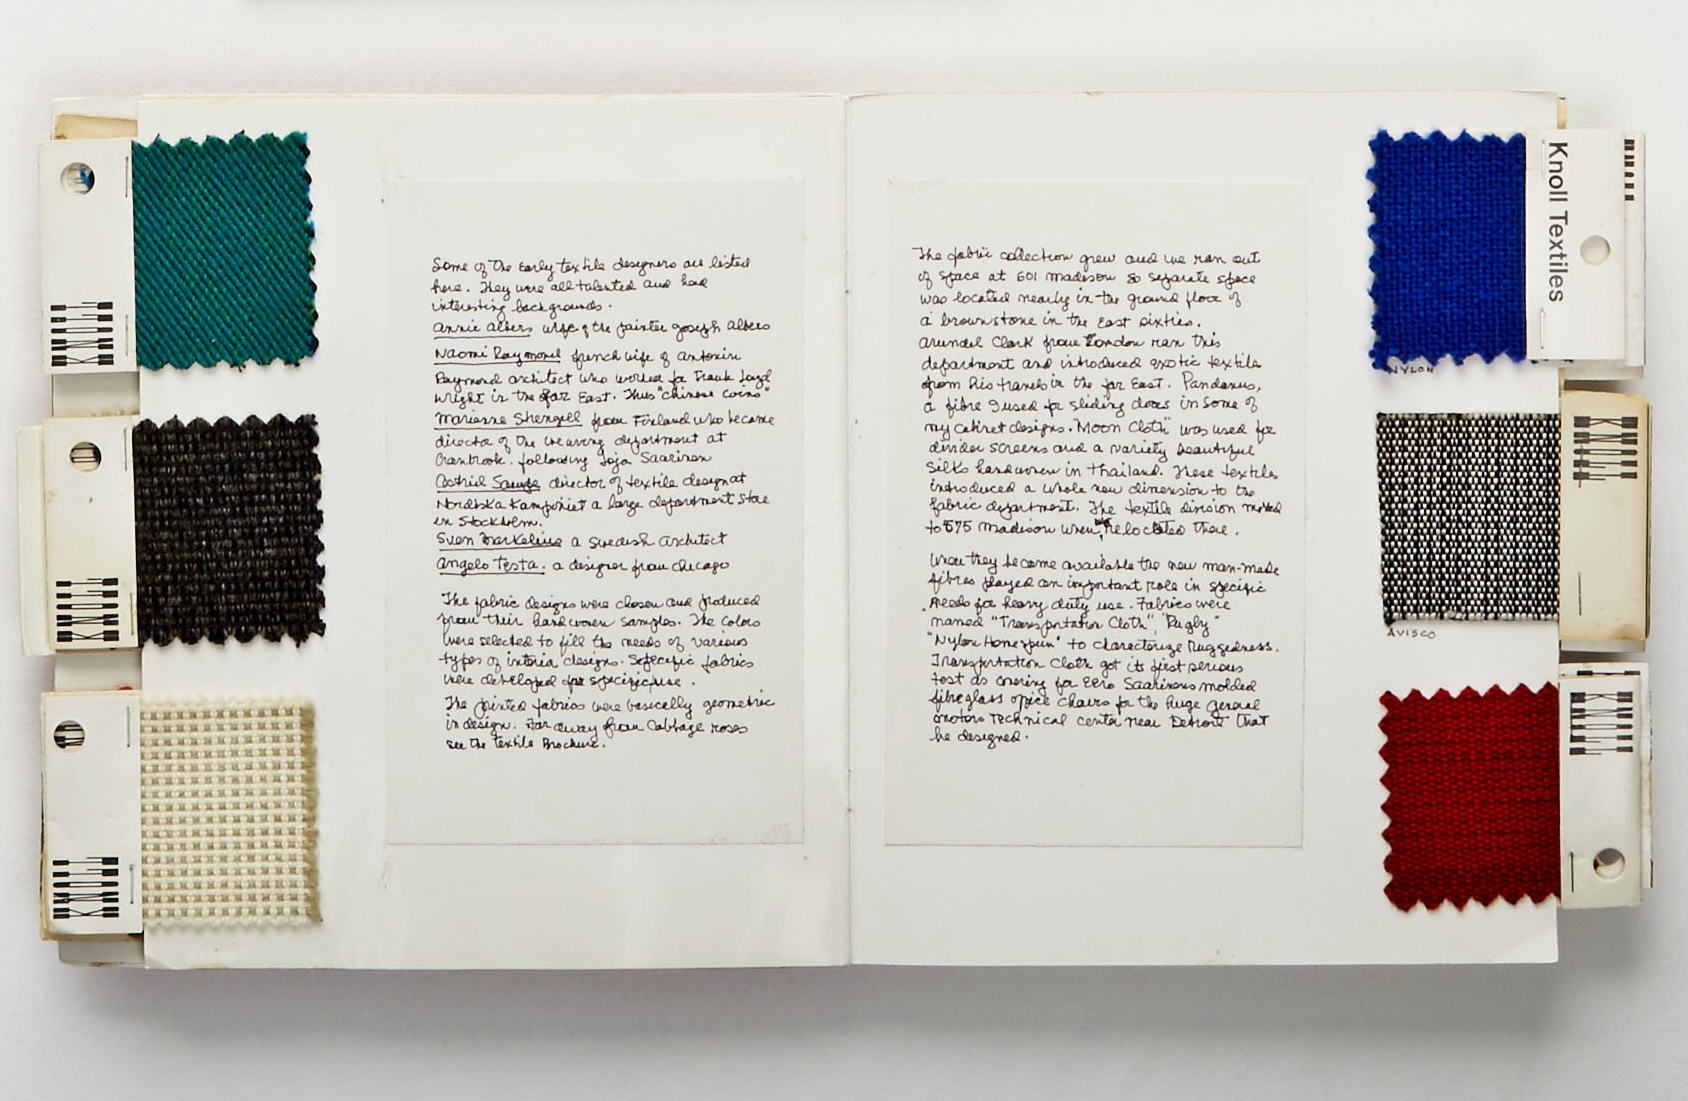 KNOLL
KNOLL
KNOLL
Some of the early textile designers are listed
here. They were all talented and had
interesting backgrounds.
Annie Albers wife of the painter Joseph Albers
Naomi Raymond french wife of Antonin
Raymond architect who worked for Frank Loyd
Wright in the far East. Thus "chinese coins"
Marianne Strengell from Finland who became
director of the weaving department at
Cranbrook. following Loja Saarinen
Astrid Sampe director of textile design at
Nordiska Kampaniet a large department store
in Stockholm.
Sven Markelius a Swedish architect
Angelo Testa. a designer from chicago
The fabric designs were chosen and produced
from their handwoven samples. The colors
were selected to fill the needs of various
types of interior designs. Specific fabrics
were developed for specific use.
The printed fabrics were basically geometric
in design. Far away from Cabbage roses
see the textile Brochure.
The fabric collection grew and we ran out
of space at 601 madison so separate space
was located nearby in the ground floor of
a brownstone in the East sixties.
Arundel Clark from London ran this
department and introduced exotic textiles
from his travels in the far East. Pandanus,
a fibre I used for sliding doors in some of
my cabinet designs. "Moon Cloth" was used for
divider screens and a variety beautiful
silks handwoven in Thailand. These textiles
introduced a whole new dimension to the
fabric department. The textile division moved
to 575 Madison when we relocated there.
When they became available the new man-made
fibres played an important role in specific
needs for heavy duty use. Fabrics were
named "Transportation Cloth", "Rugby"
"Nylon Homespun" to characterize Ruggedness.
Transportation Cloth got its first serious
test as covering for Eero Saarinens molded
fibreglass office chairs for the huge general
motors Technical center near Detroit that
he designed.
Knoll Textiles
NYLON
KNOLL
AVISCO
KNOLL